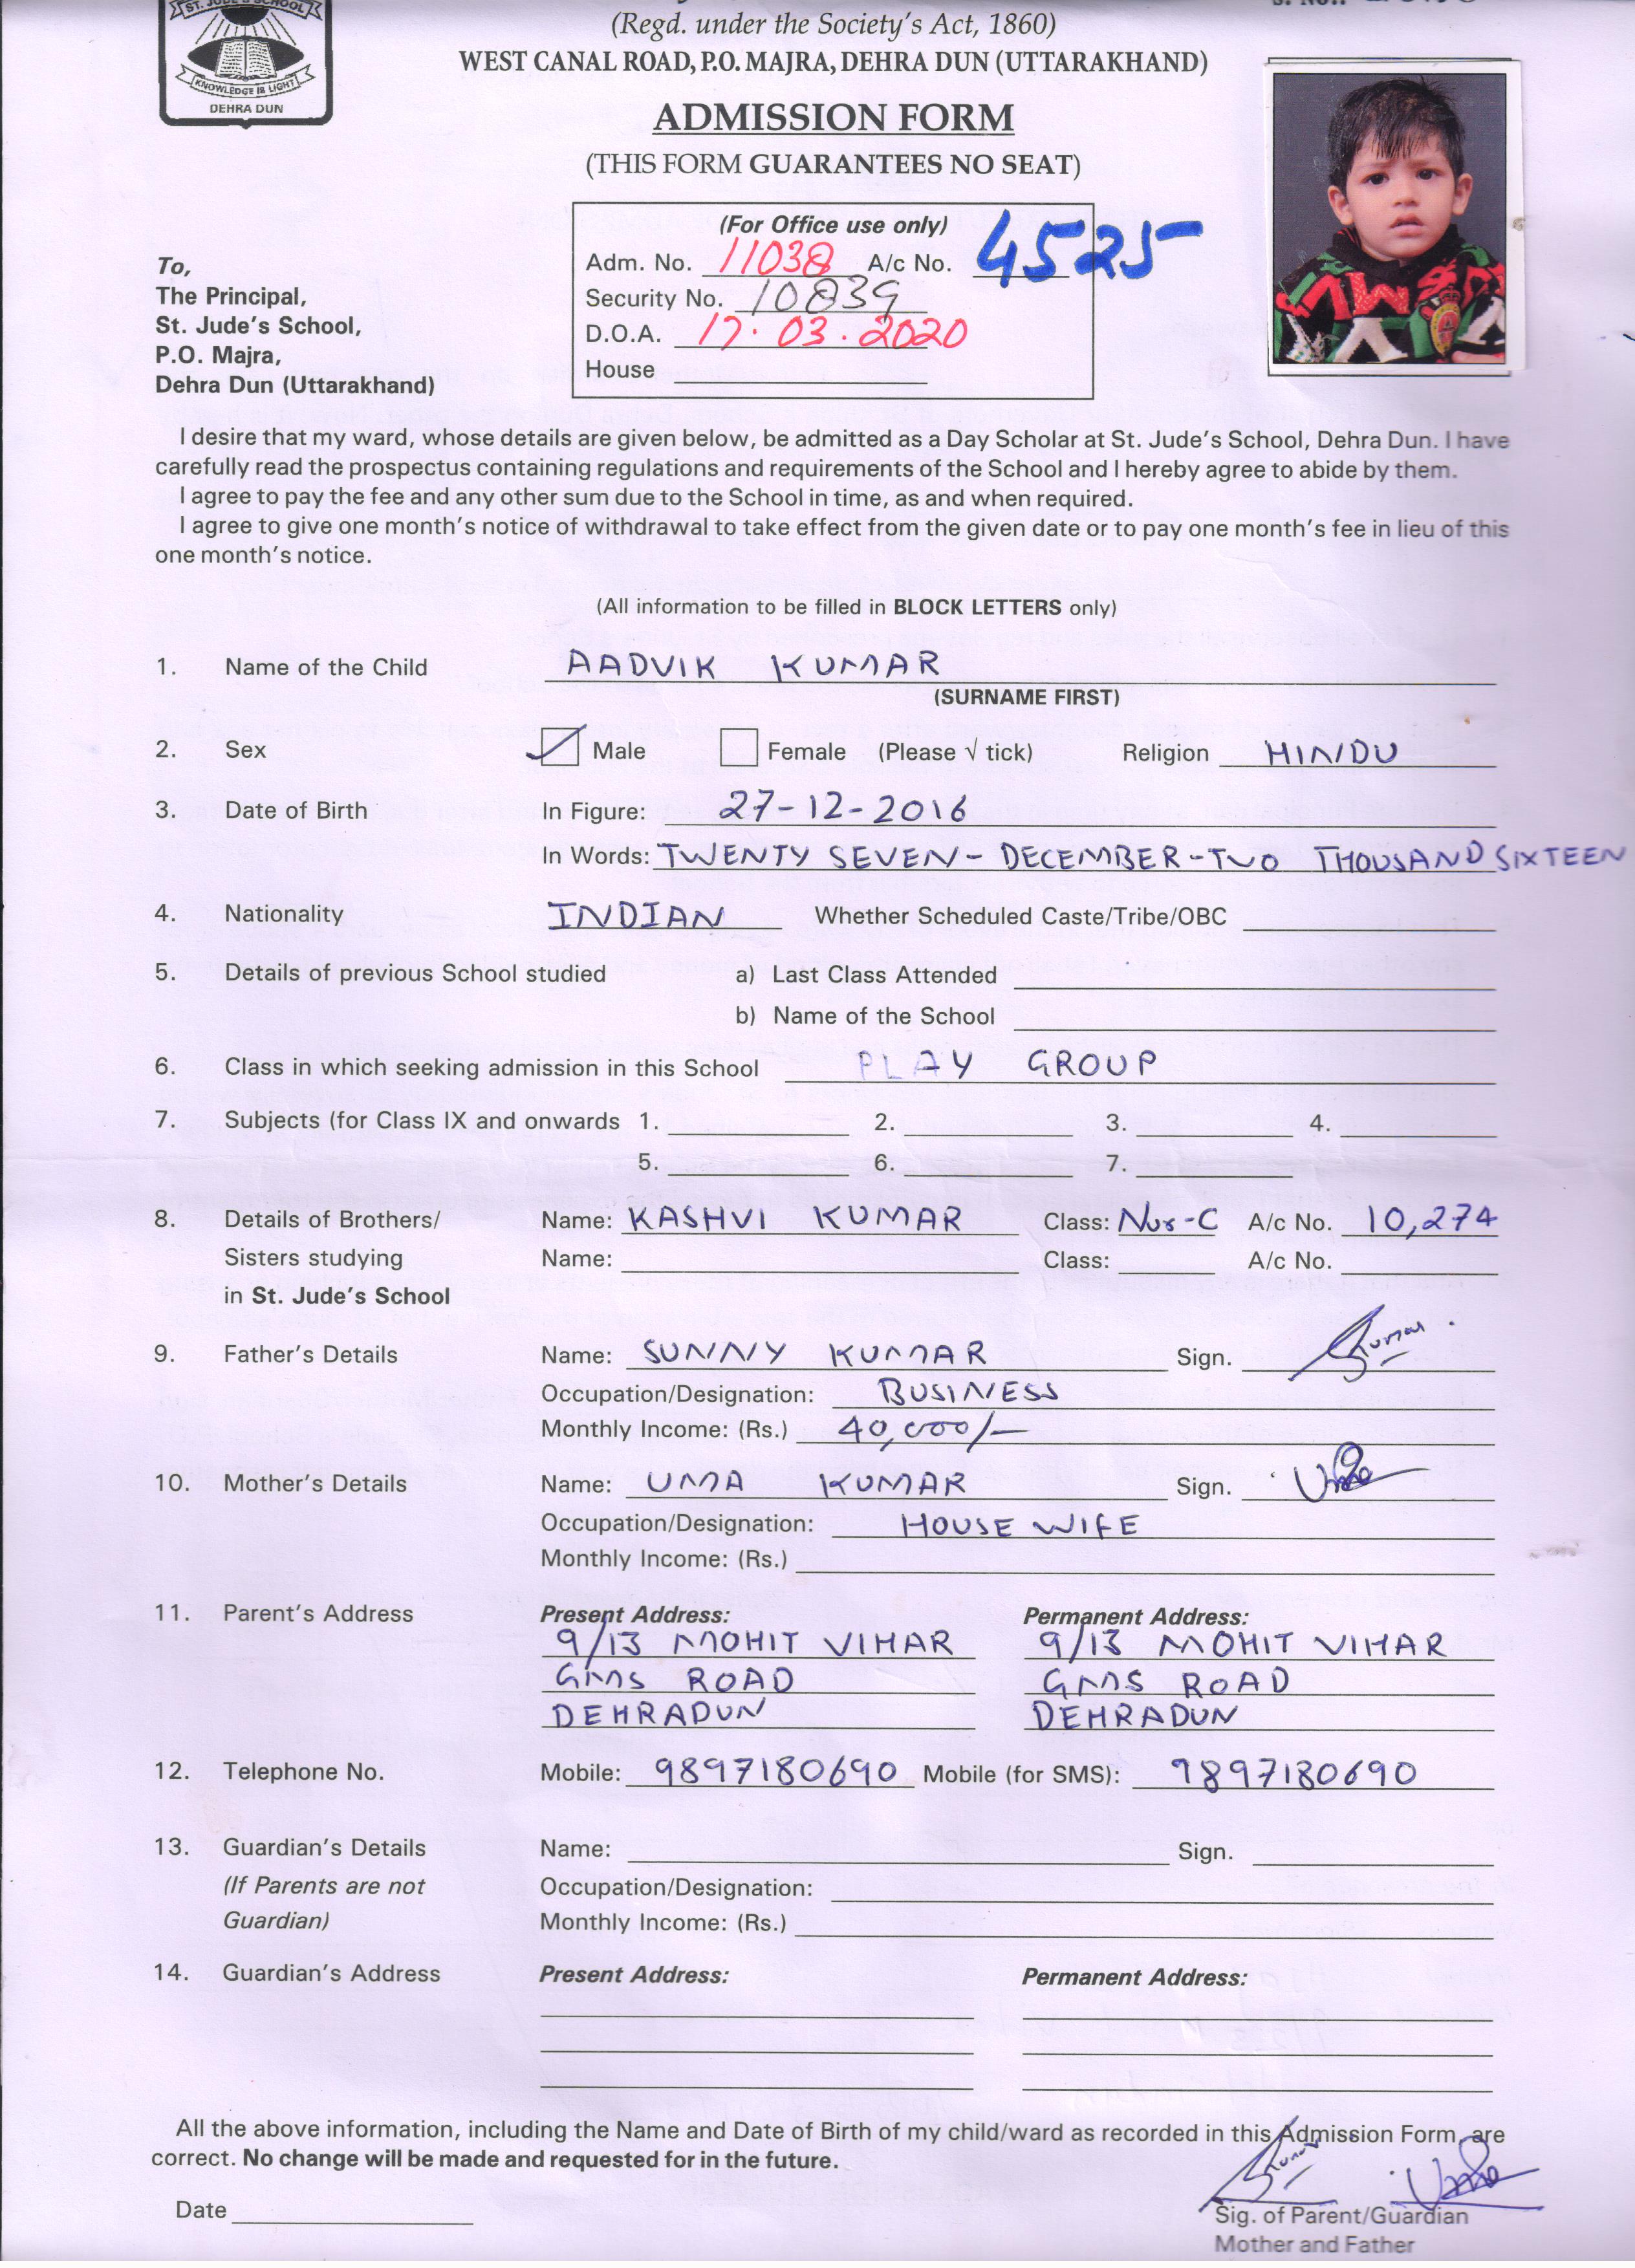 ST. JUDE'S SCHOOL
KNOWLEDGE IS LIGHT
DEHRA DUN
(Regd. under the Society's Act, 1860)
WEST CANAL ROAD, P.O. MAJRA, DEHRA DUN (UTTARAKHAND)
ADMISSION FORM
(THIS FORM GUARANTEES NO SEAT)
(For Office use only)
Adm. No. 11038 A/c No. 4525
Security No. 10839
D.O.A. 17.03.2020
House
To,
The Principal,
St. Jude's School,
P.O. Majra,
Dehra Dun (Uttarakhand)
I desire that my ward, whose details are given below, be admitted as a Day Scholar at St. Jude's School, Dehra Dun. I have
carefully read the prospectus containing regulations and requirements of the School and I hereby agree to abide by them.
I agree to pay the fee and any other sum due to the School in time, as and when required.
I agree to give one month's notice of withdrawal to take effect from the given date or to pay one month's fee in lieu of this
one month's notice.
(All information to be filled in BLOCK LETTERS only)
1. Name of the Child AADVIK KUMAR
(SURNAME FIRST)
2. Sex Male Female (Please √ tick) Religion HINDU
3. Date of Birth In Figure: 27-12-2016
In Words: TWENTY SEVEN- DECEMBER-TWO THOUSAND SIXTEEN
4. Nationality INDIAN Whether Scheduled Caste/Tribe/OBC
5. Details of previous School studied a) Last Class Attended
b) Name of the School
6. Class in which seeking admission in this School PLAY GROUP
7. Subjects (for Class IX and onwards 1. 2. 3. 4.
5. 6. 7.
8. Details of Brothers/ Name: KASHVI KUMAR Class: Nur-C A/c No. 10,274
Sisters studying Name: Class: A/c No.
in St. Jude's School
9. Father's Details Name: SUNNY KUMAR Sign. Kumar
Occupation/Designation: BUSINESS
Monthly Income: (Rs.) 40,000/-
10. Mother's Details Name: UMA KUMAR Sign.
Occupation/Designation: HOUSE WIFE
Monthly Income: (Rs.)
11. Parent's Address Present Address: Permanent Address:
9/13 MOHIT VIHAR 9/13 MOHIT VIHAR
GMS ROAD GMS ROAD
DEHRADUN DEHRADUN
12. Telephone No. Mobile: 9897180690 Mobile (for SMS): 9897180690
13. Guardian's Details Name: Sign.
(If Parents are not Occupation/Designation:
Guardian) Monthly Income: (Rs.)
14. Guardian's Address Present Address: Permanent Address:
All the above information, including the Name and Date of Birth of my child/ward as recorded in this Admission Form, are
correct. No change will be made and requested for in the future.
Date
Sig. of Parent/Guardian
Mother and Father